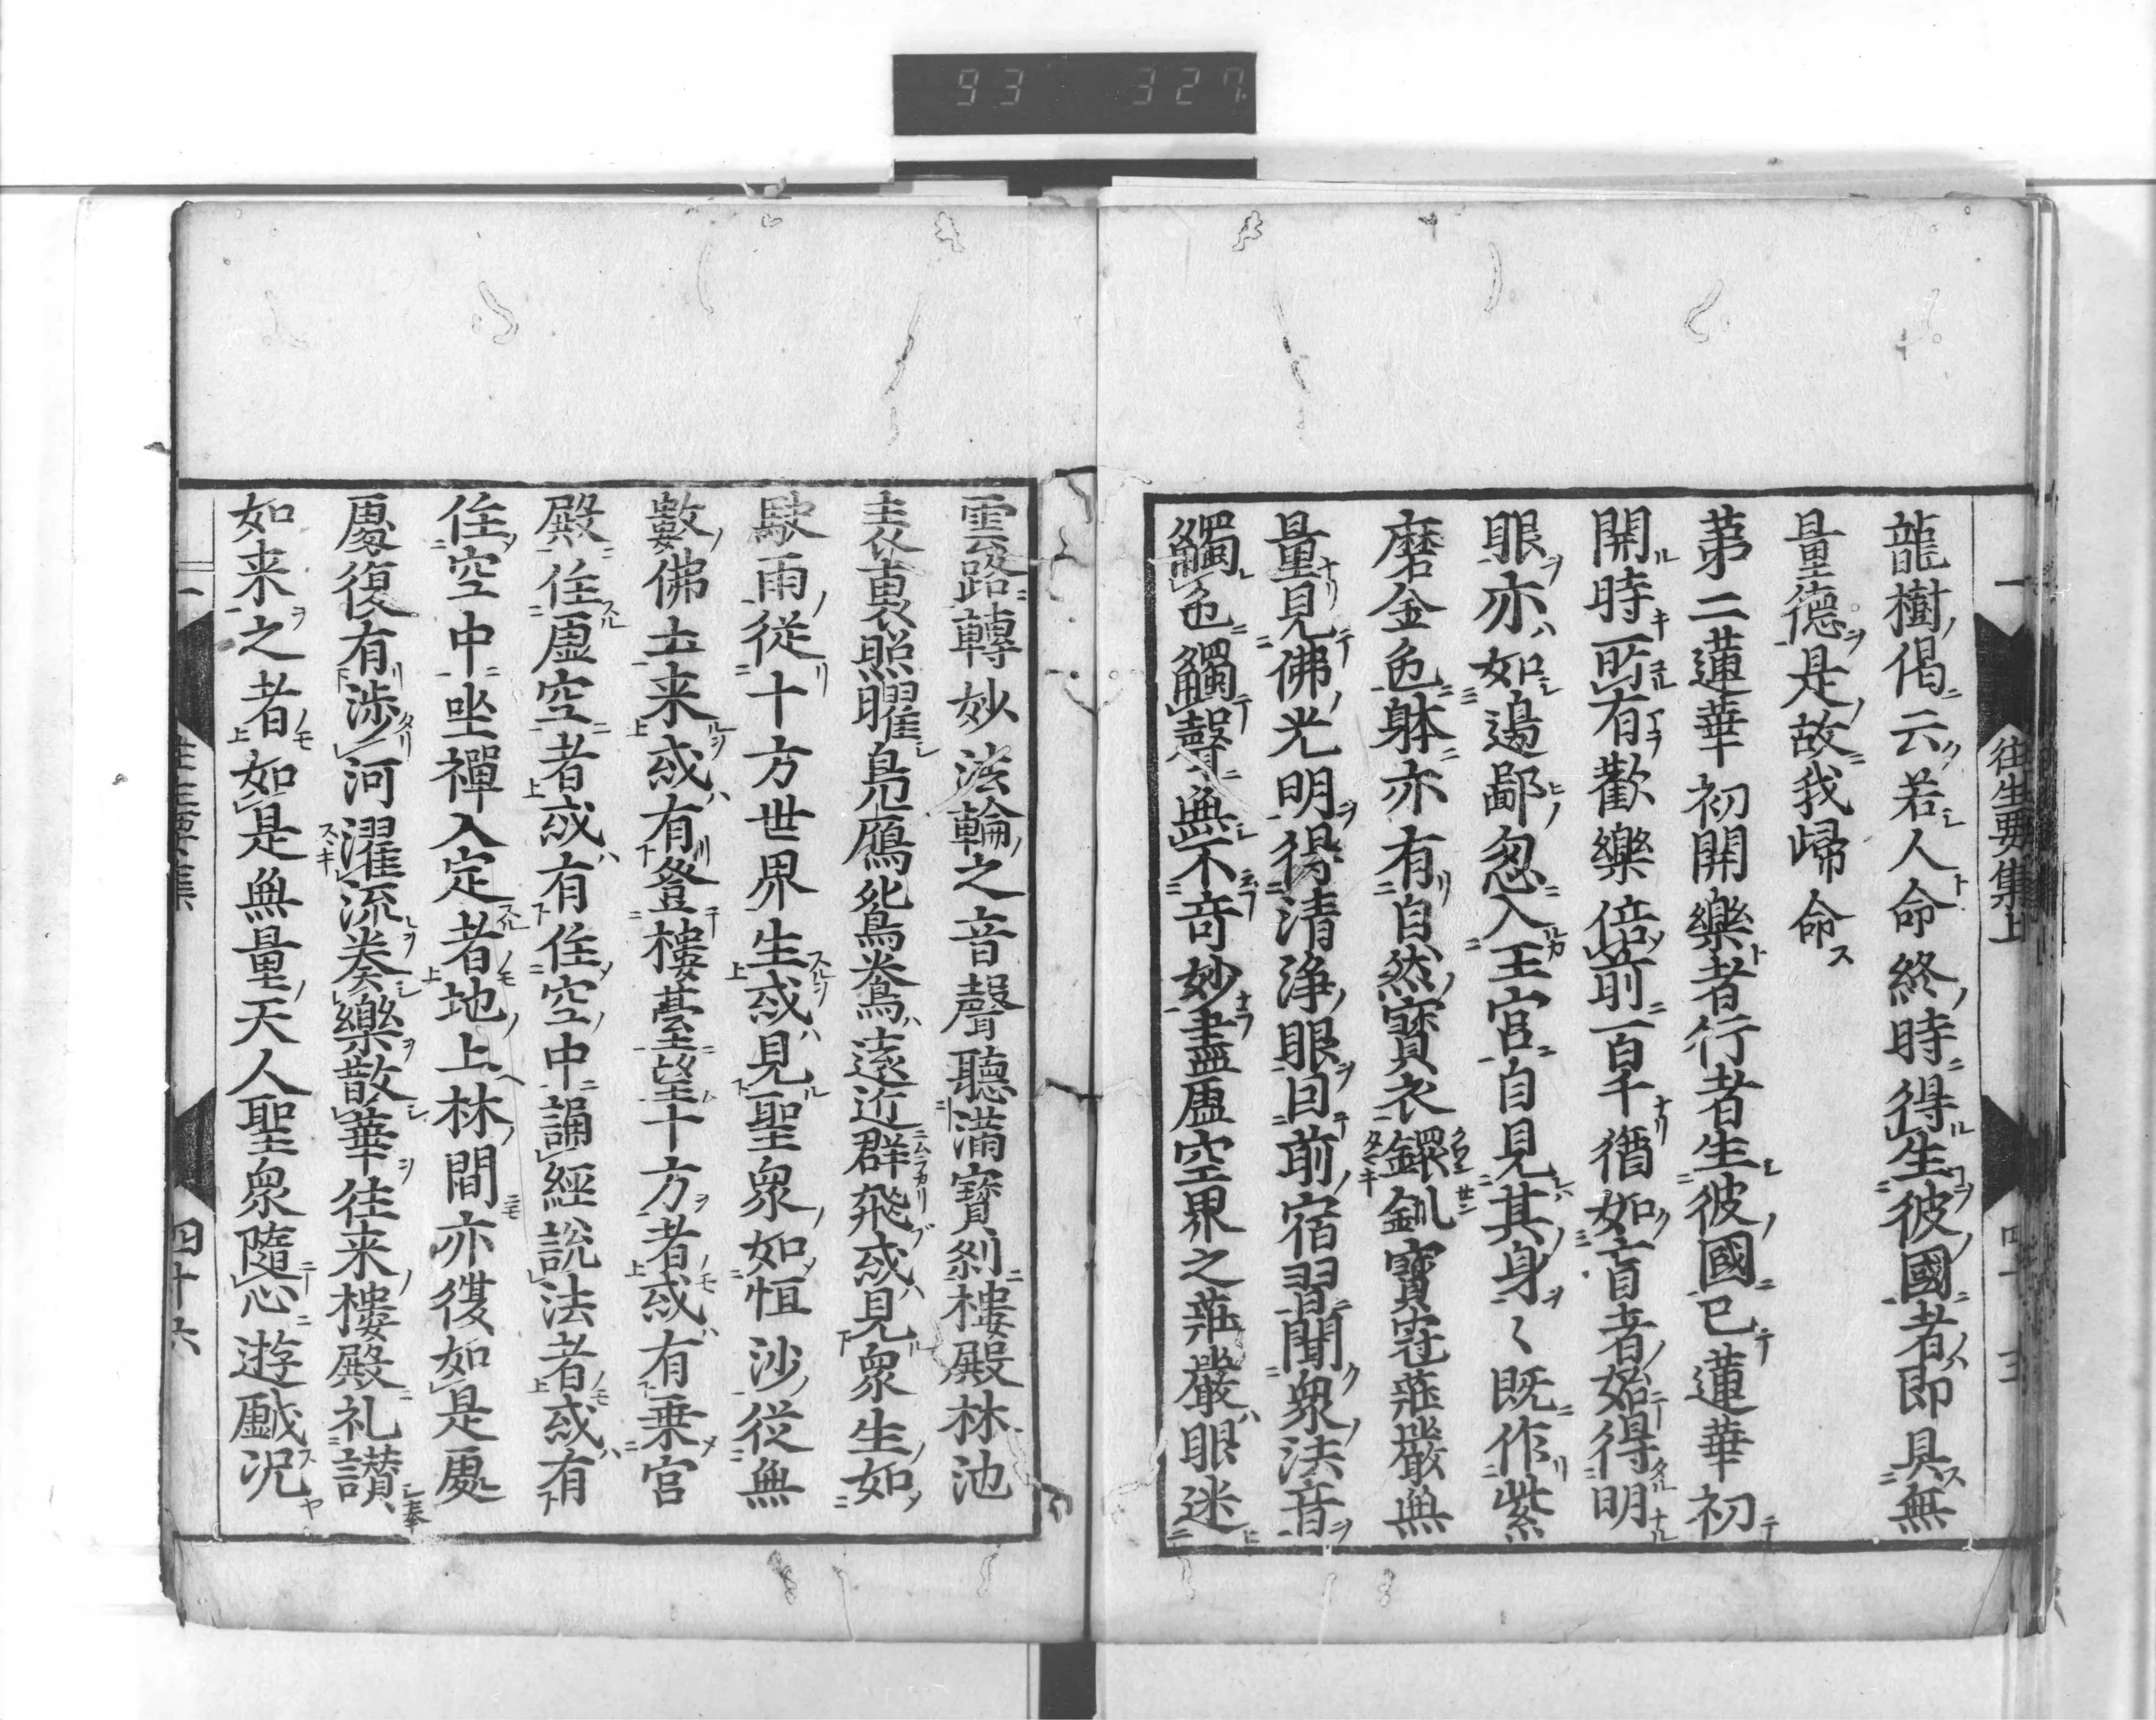 93 327
往生要集上
龍樹偈云若人命終時得生彼國者即具無
量德是故我歸命
第二蓮華初開樂者行者生彼國已蓮華初
開時所有歡樂倍前百千猶如盲者始得明
眼亦如邊鄙忽入王宮自見其身〻既作紫
磨金色躰亦有自然寶衣鐶釧寶冠莊嚴無
量見佛光明得清淨眼因前宿習聞衆法音
觸色觸聲無不奇妙盡虛空界之莊嚴眼迷
雲路轉妙法輪之音聲聽滿寶刹樓殿林池
表裏照曜鳧鴈鴛鴦遠近群飛或見衆生如
駛雨從十方世界生或見聖衆如恒沙從無
數佛土来或有登樓臺望十方者或有乗宮
殿住虛空者或有住空中誦經說法者或有
住空中坐禪入定者地上林間亦復如是處
處復有渉河濯流奏樂散華往来樓殿礼讃
如来之者如是無量天人聖衆隨心遊戲况
四十六